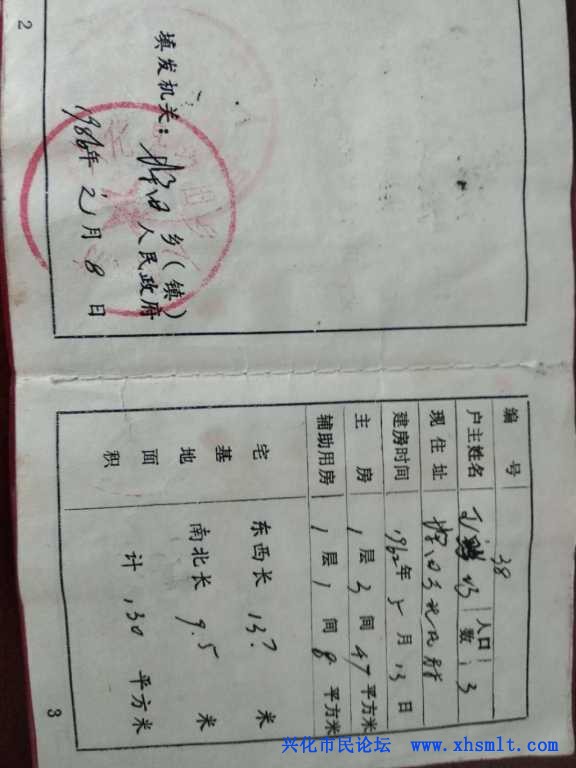 填发机关：垛田乡（镇）人民政府
1986年2月8日
2
编号 38
户主姓名 人口数 3
现住址 垛田乡
建房时间 1962年5月13日
主房 1层3间47平方米
辅助用房 1层1间8平方米
宅基地面积 东西长 13.7 米
南北长 9.5 米
计 130 平方米
3
兴化市民论坛 www.xhsmlt.com